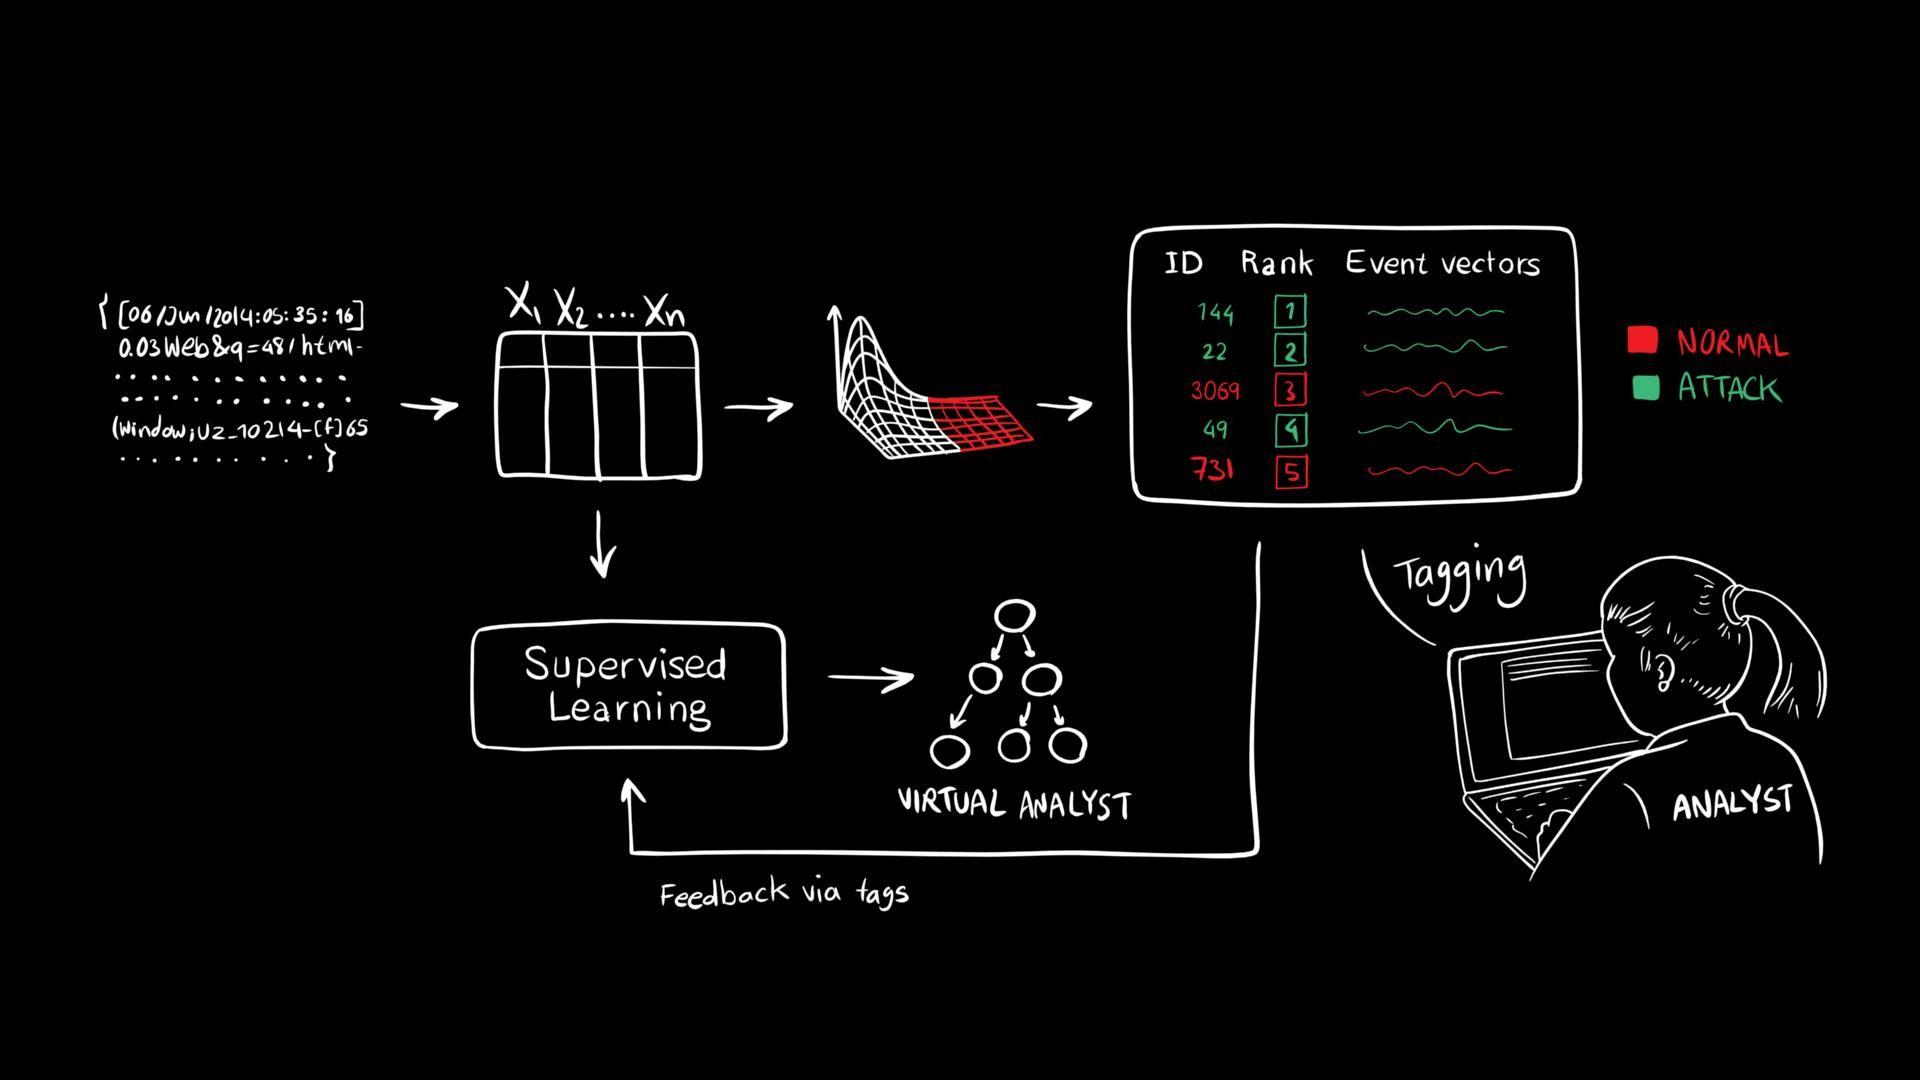 { [06/Jun/2014:05:35:16]
0.03Web&q=48/html-
(Window;Uz_10214-(f)65
}
X1 X2 .... Xn
ID Rank Event vectors
144 1
22 2
3069 3
49 4
731 5
NORMAL
ATTACK
Tagging
Supervised
Learning
VIRTUAL ANALYST
ANALYST
Feedback via tags